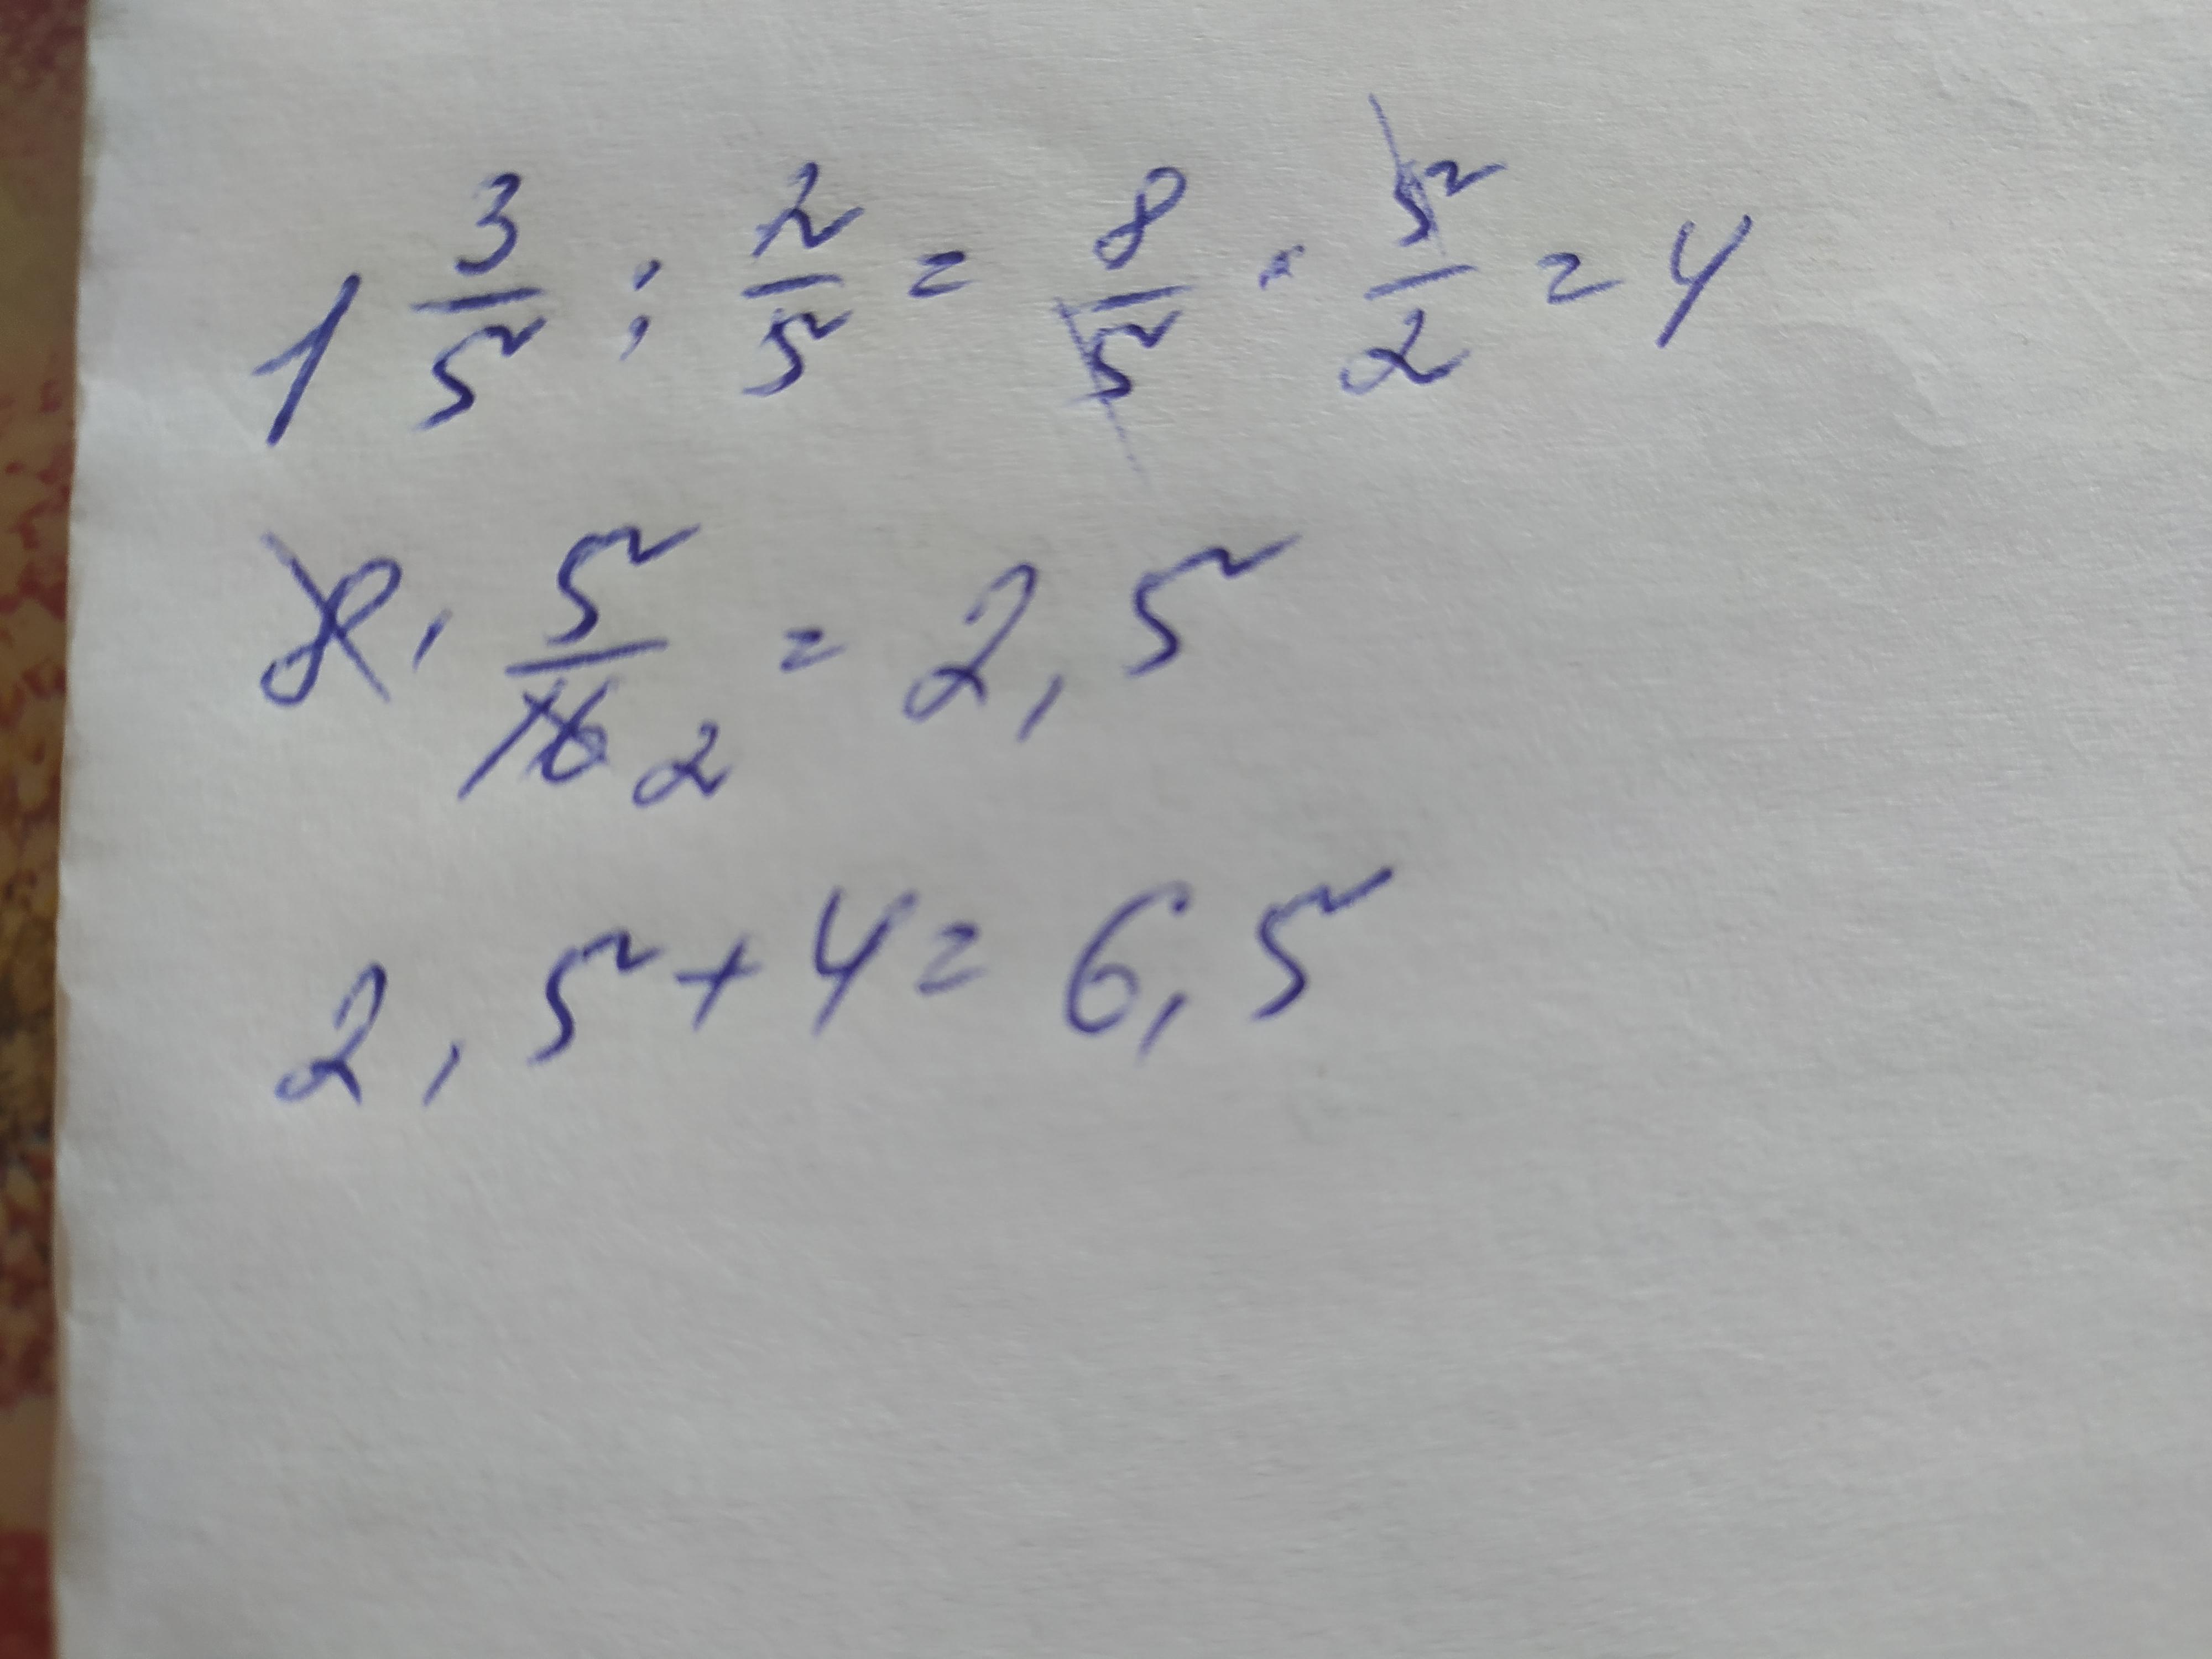 1 3/5 : 2/5 = 8/5 · 5/2 = 4
8 · 5/16 2 = 2,5
2,5 + 4 = 6,5